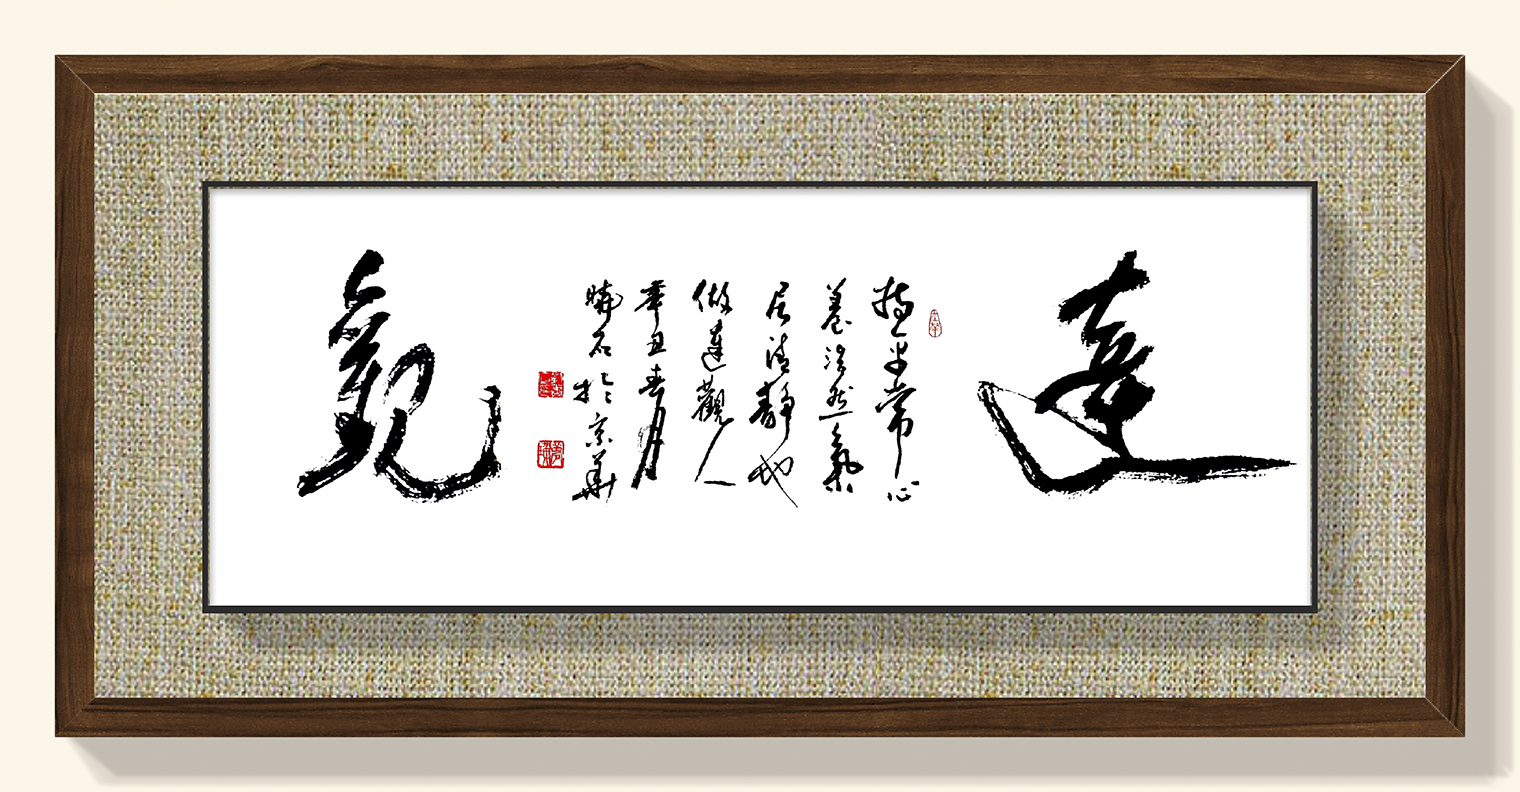 達
持平常心
養浩然氣
居清靜地
做達觀人
辛丑春月
曉石於京華
觀